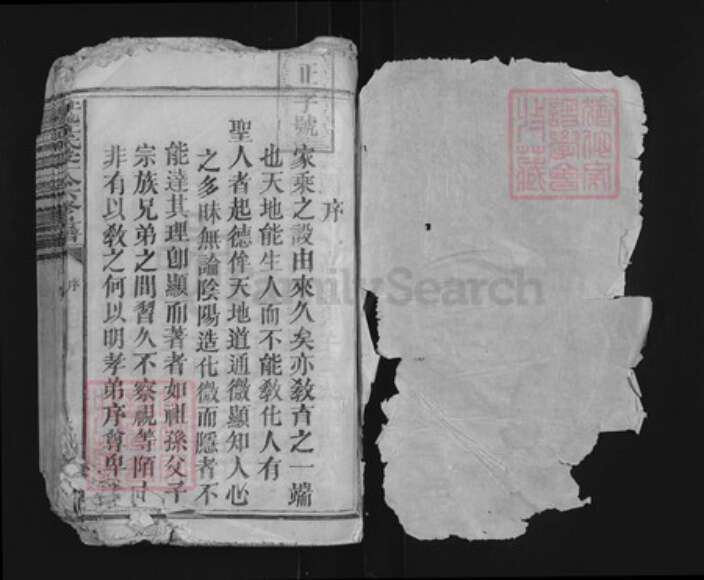 正字號
序
家乘之設由來久矣亦教育之一端
也天地能生人而不能教化人有
聖人者起德侔天地道通微顯知人心
之多昧無論陰陽造化微而隱者不
能達其理即顯而著者如祖孫父子
宗族兄弟之間習久不察視等陌
非有以教之何以明孝弟序尊卑
序
FamilySearch